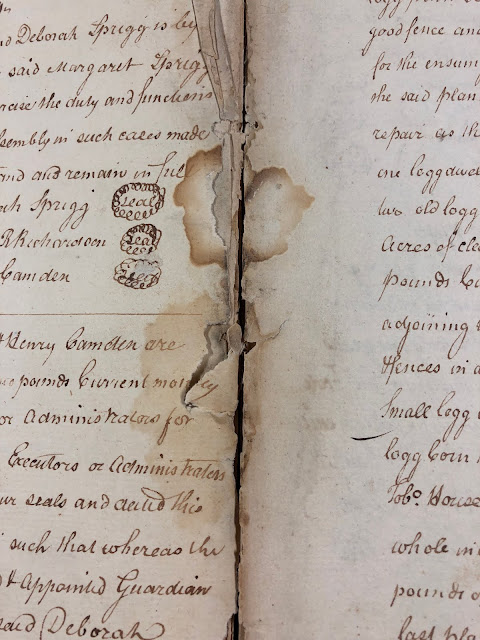 nd Deborah Sprigg is by
said Margaret Sprigg
rcise the duty and functions
ssembly in such cases made
and and remain in full
ah Sprigg Seal
R Richardson Seal
Camden Seal
Henry Camden are
pounds Current money
or Administrators for
Executors or Administrators
ur seals and dated this
such that whereas the
Appointed Guardian
said Deborah
good fence and
for the ensum
the said plan
repair as th
one logg dwel
two old logg
Acres of cle
pounds Cu
adjoining t
Hences in a
Small logg
logg Corn
Tobo. House
whole in
pounds o
last pla